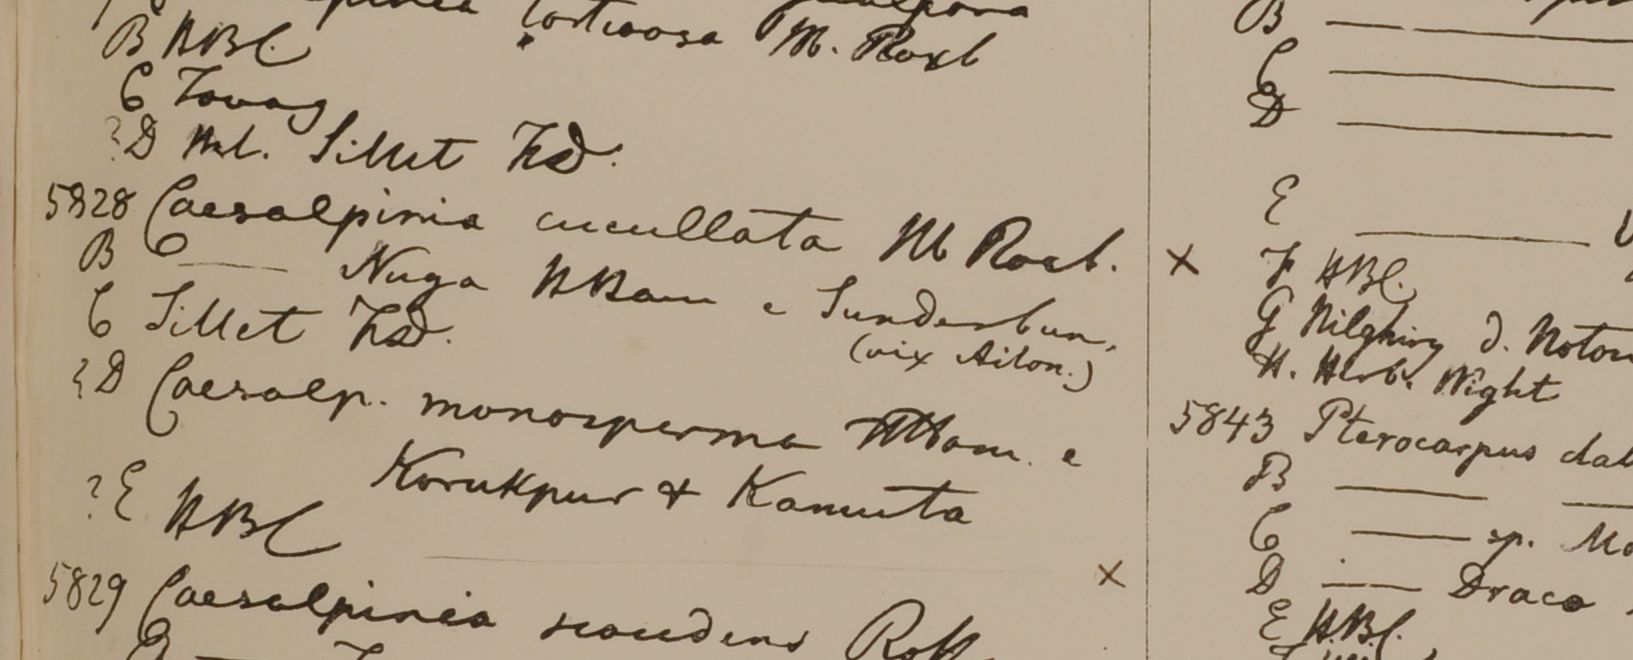 tortuosa M. Roxb
B HBC
C Tavoy
?D Hb. Sillet F&D.
5828 Caesalpinia cucullata M Roxb.
B C —— Nuga HHam e Sunderbun,
(vix Aiton.)
C Sillet F&D.
?D Caesalp. monosperma HHam. e
Korukpur & Kamuta
?E HBC
5829 Caesalpinia scandens Roth
B ——
B ——
C ——
D ——
E ——
× F HBC.
G Nilghiry d. Noton
H. Herb. Wight
5843 Pterocarpus dal
B ——
C —— sp.
× D —— Draco
E H.B.C.